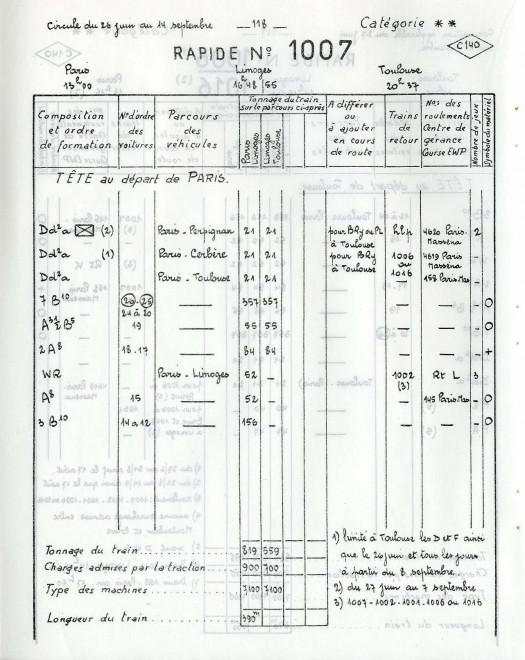 Circule du 26 juin au 14 septembre — 118 — Catégorie **
RAPIDE No 1007 C140
Paris Limoges Toulouse
13h00 16h48 | 55 20h37
Composition et ordre de formation
Nos d'ordre des voitures
Parcours des véhicules
Tonnage du train sur le parcours ci-après
Paris Limoges
Limoges Toulouse
A différer ou à ajouter en cours de route
Trains de retour
Nos des roulements Centre de gérance Course EWP
Nombre de jeux
Symbole du matériel
TÊTE au départ de PARIS.
Dd²a (2) Paris - Perpignan 21 21 pour BRy ou PL à Toulouse Rlp 4620 Paris-Masséna 2
Dd²a (1) Paris - Corbère 21 21 pour BRy à Toulouse 1006 ou 1016 4619 Paris Masséna -
Dd²a Paris - Toulouse 21 21 158 Paris Mas -
7 B10 26 - 25 —— 357 357 — — — - O
21 à 20
A3½B5 19 —— 55 55 — — — - O
2A8 18 - 17 —— 84 84 — — — - +
WR Paris - Limoges 52 - 1002 (3) Rt L 3
A8 15 —— 52 - — — 145 Paris-Mas - O
3 B10 14 à 12 —— 156 - — — — - O
Tonnage du train 819 559
Charges admises par la traction 900 700
Type des machines 7100 7100
Longueur du train 390m
1) limité à Toulouse les D et F ainsi
que le 26 juin et tous les jours
à partir du 8 septembre
2) du 27 juin au 7 septembre
3) 1007 - 1002 - 1001 - 1006 ou 1016